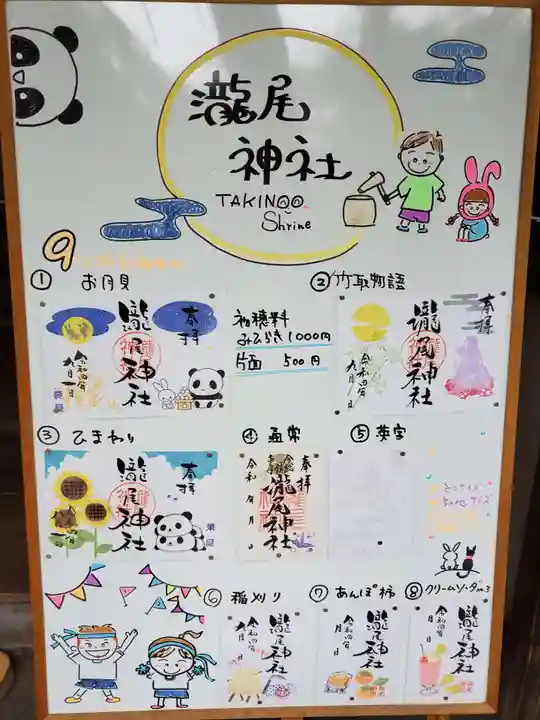 瀧尾
神社
TAKINOO
Shrine
9
① お月見
② 竹取物語
奉拝
瀧尾神社
令和四年
九月一日
初穂料
みひらき 1000円
片面 500円
奉拝
瀧尾神社
令和四年
九月 日
③ ひまわり
④ 通常
⑤ 英字
奉拝
瀧尾神社
奉拝
瀧尾神社
令和 年 月 日
⑥ 稲刈り
⑦ あんぽ柿
⑧ クリームソーダver.3
瀧尾神社
令和四年
九月 日
瀧尾神社
令和四年
九月 日
瀧尾神社
令和四年
九月 日